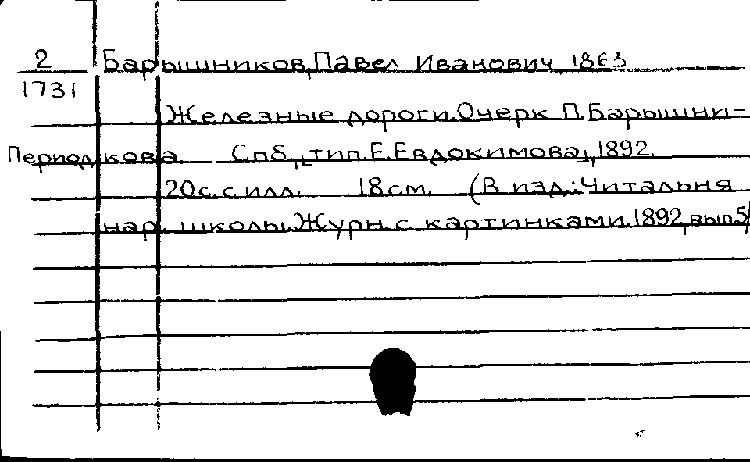 2 Барышников, Павел Иванович, 1863
1731
Железные дороги. Очерк П. Барышни-
Период. кова. Спб., тип. Е. Евдокимова, 1892.
20 с. с илл. 18 см. (В изд.: Читальня
нар. школы. Журн. с картинками. 1892, вып. 5)